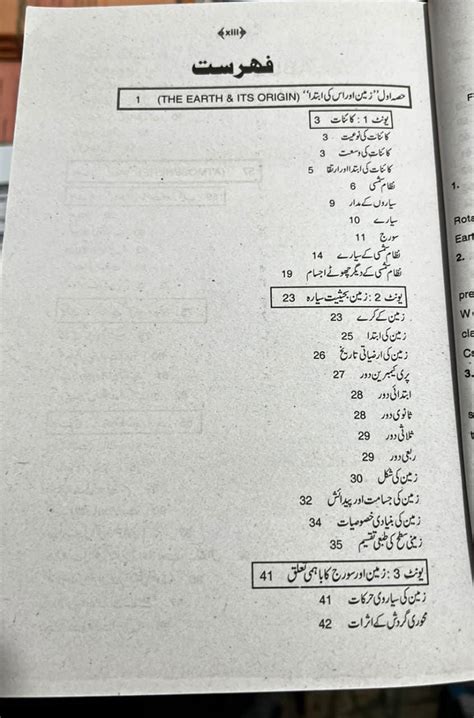 ﴾xiii﴿
فهرست
حصہ اول "زمین اور اس کی ابتدا" (THE EARTH & ITS ORIGIN) 1
یونٹ 1 : کائنات 3
کائنات کی نوعیت 3
کائنات کی وسعت 3
کائنات کی ابتدا اور ارتقا 5
نظام شمسی 6
سیاروں کے مدار 9
سیارے 10
سورج 11
نظام شمسی کے سیارے 14
نظام شمسی کے دیگر چھوٹے اجسام 19
یونٹ 2 : زمین بحیثیت سیارہ 23
زمین کے کرے 23
زمین کی ابتدا 25
زمین کی ارضیاتی تاریخ 26
پری کیمبرین دور 27
ابتدائی دور 28
ثانوی دور 28
ثلاثی دور 29
ربعی دور 29
زمین کی شکل 30
زمین کی جسامت اور پیدائش 32
زمین کی بنیادی خصوصیات 34
زمینی سطح کی طبعی تقسیم 35
یونٹ 3 : زمین اور سورج کا باہمی تعلق 41
زمین کی سیاروی حرکات 41
محوری گردش کے اثرات 42
1.
Rota
Eart
2.
pre
W
cle
3.